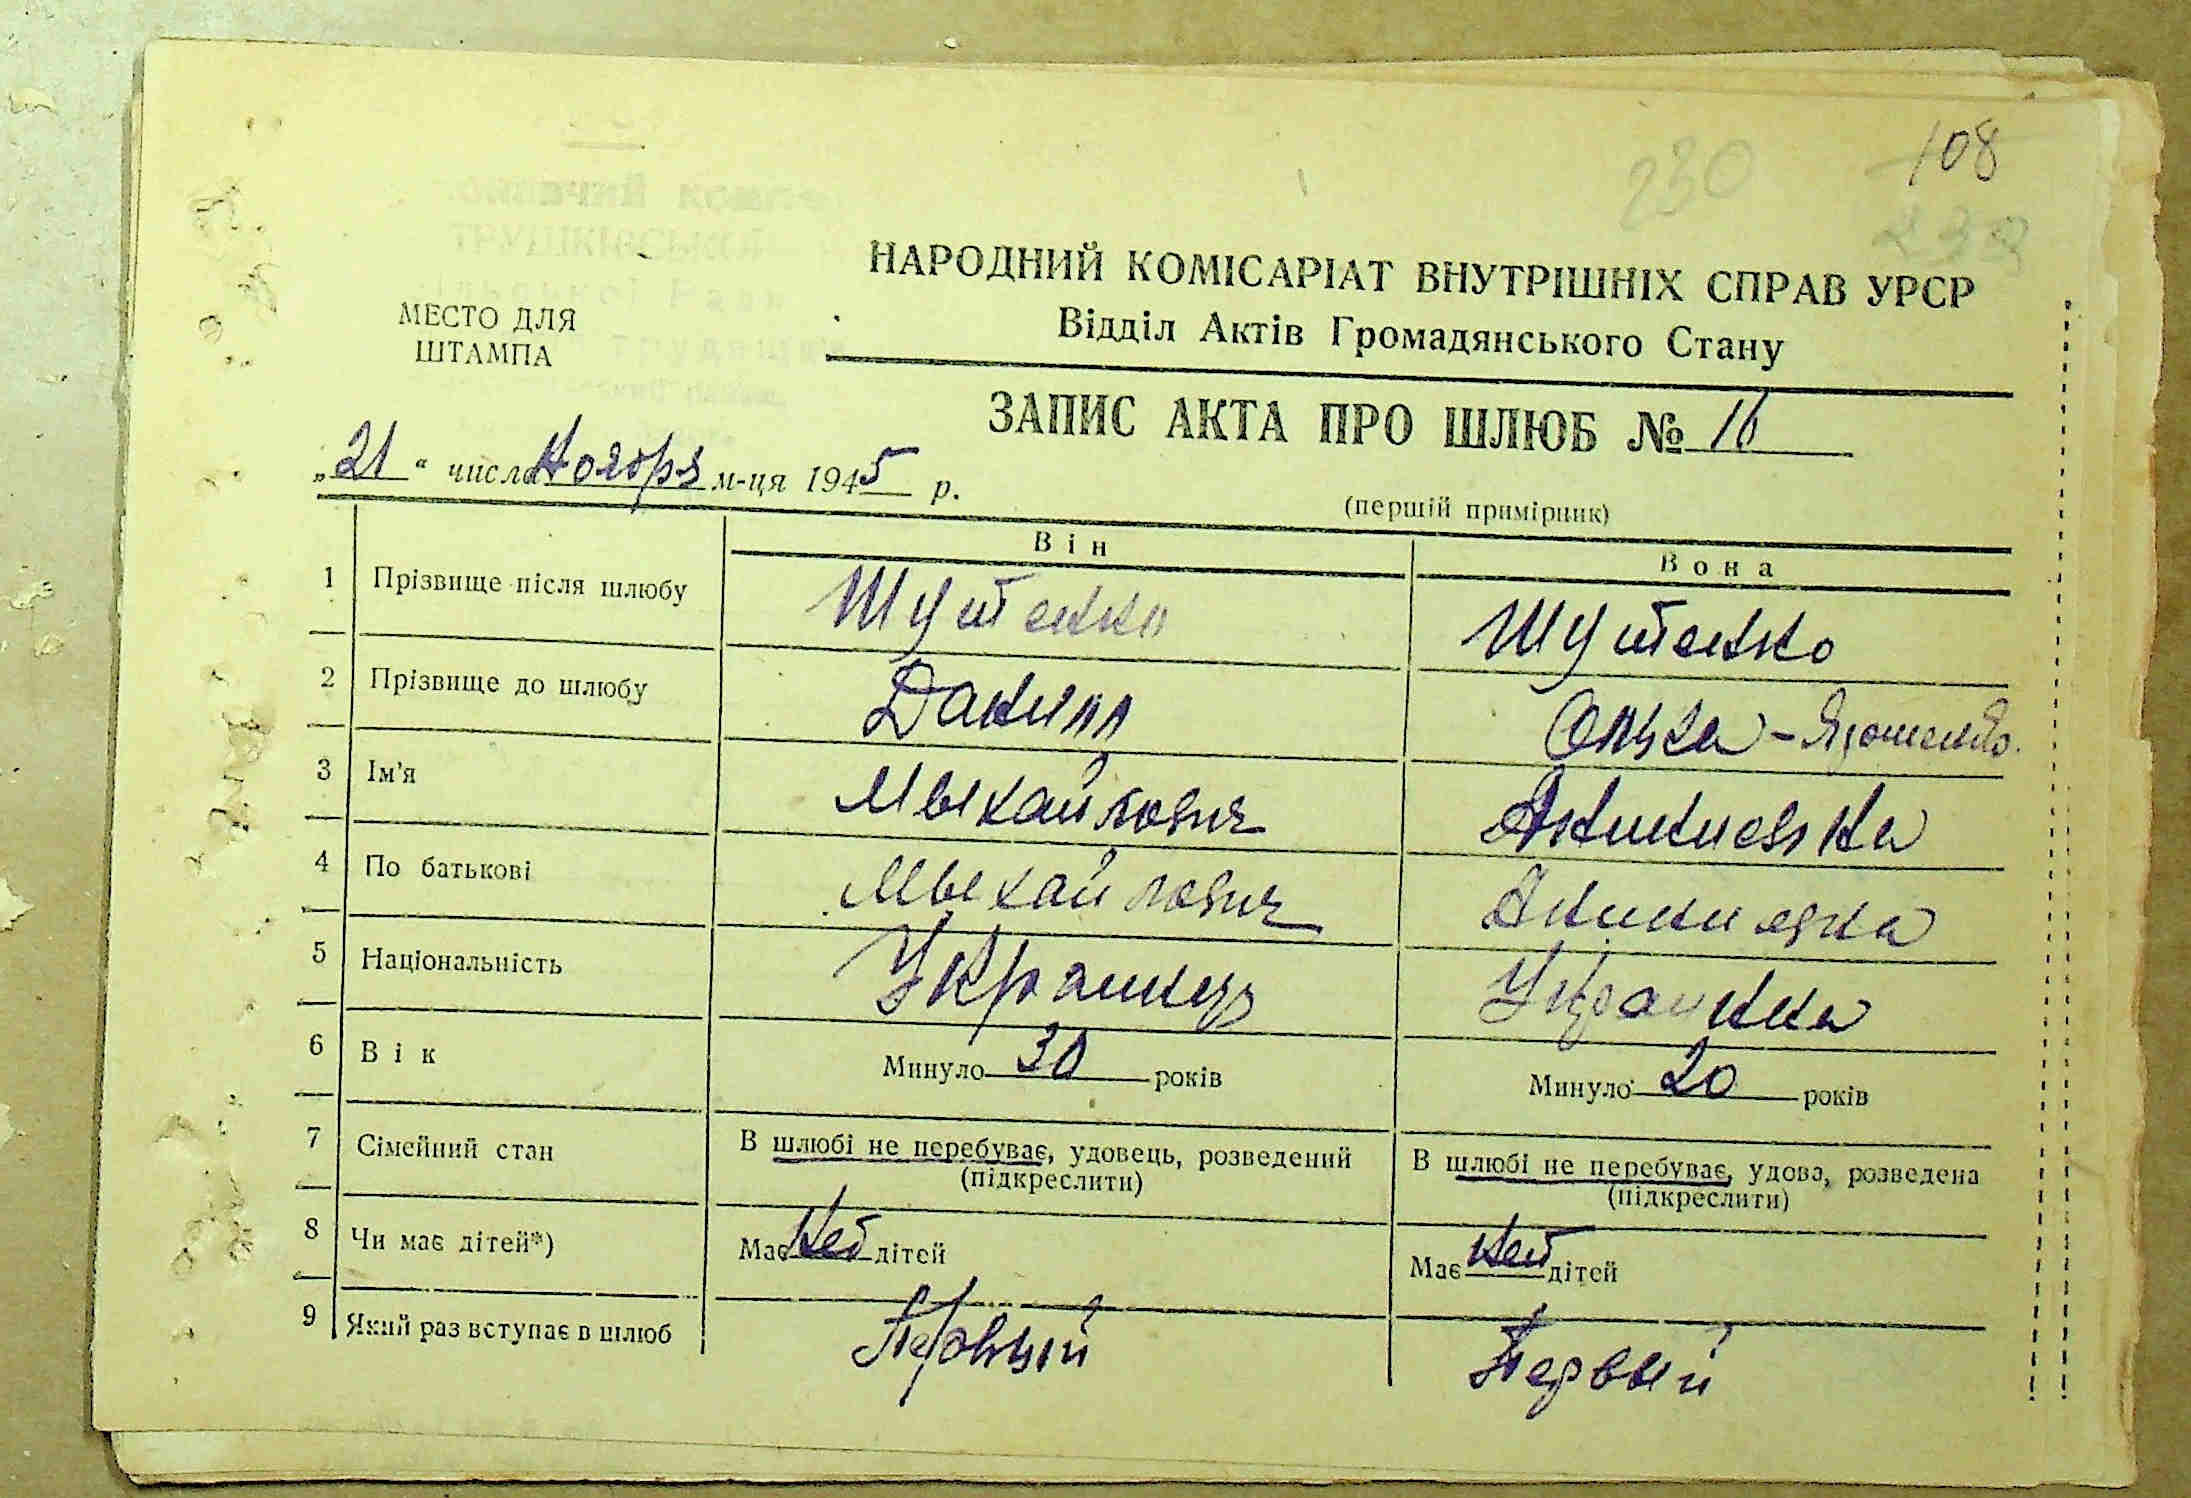 108
230
НАРОДНИЙ КОМІСАРІАТ ВНУТРІШНІХ СПРАВ УРСР
Відділ Актів Громадянського Стану
МЕСТО ДЛЯ
ШТАМПА
ТРУШКІВСЬКОЇ
ЗАПИС АКТА ПРО ШЛЮБ № 16
„21“ числа Ноября м-ця 1945 р.
(перший примірник)
Він Вона
1 Прізвище після шлюбу Шутенко Шутенко
2 Прізвище до шлюбу Данилл Ольга - Ярошенко.
3 Ім'я Мыхайлович Акимовна
4 По батькові Мыхайлович
5 Національність Украинец Украинка
6 Вік Минуло 30 років Минуло 20 років
7 Сімейний стан В шлюбі не перебуває, удовець, розведений В шлюбі не перебуває, удова, розведена
(підкреслити) (підкреслити)
8 Чи має дітей*) Має Нет дітей Має нет дітей
9 Який раз вступає в шлюб Первый Первый